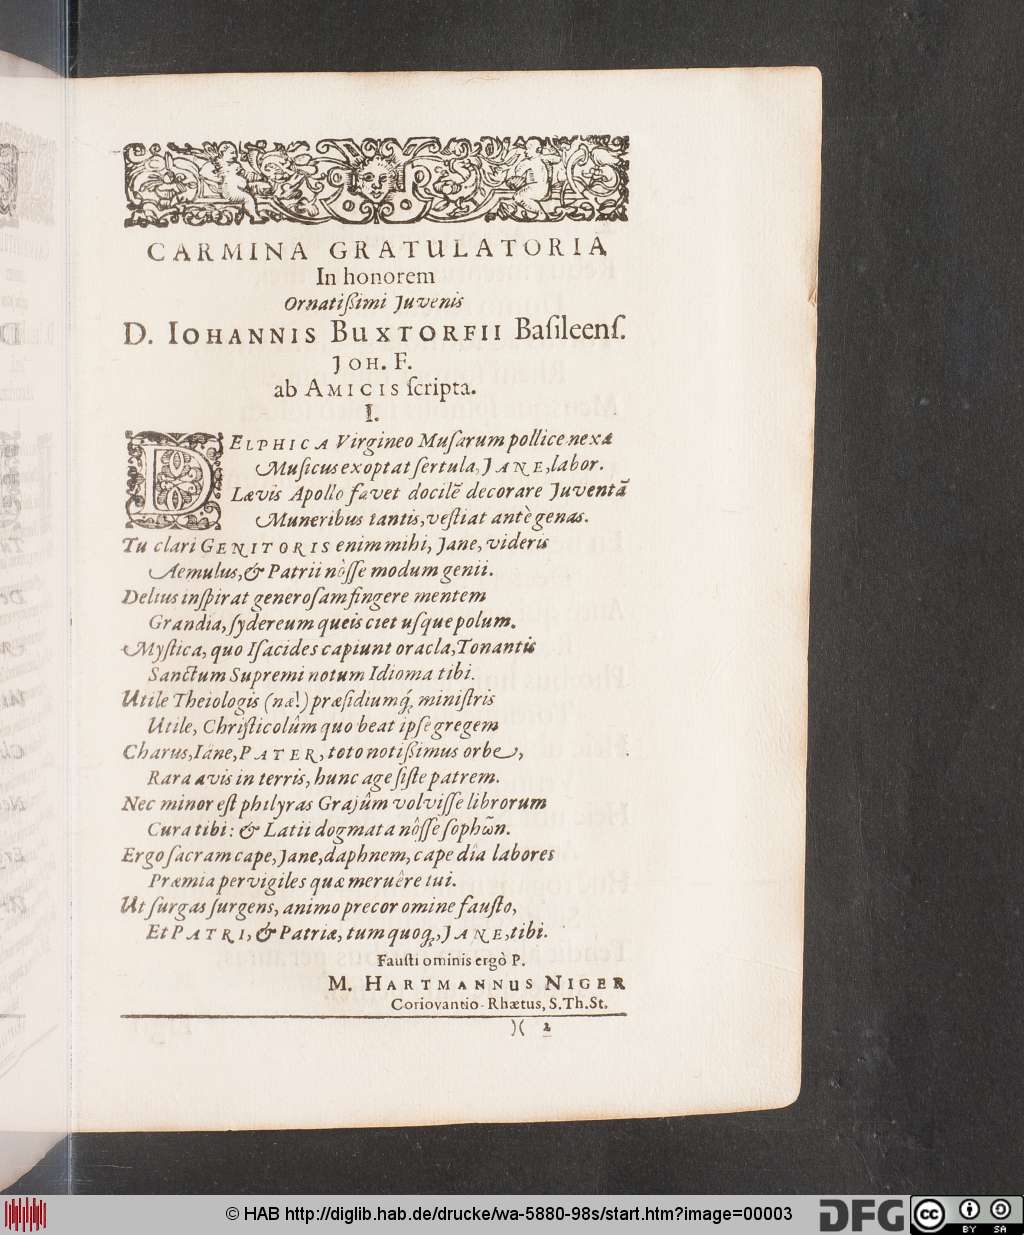 CARMINA GRATULATORIA
In honorem
Ornatißimi Juvenis
D. IOHANNIS BUXTORFII Baſileenſ.
JOH. F.
ab AMICIS ſcripta.
I.
DELPHICA Virgineo Muſarum pollice nexa
Muſicus exoptat ſertula, JANE, labor.
Lævis Apollo favet docilẽ decorare Juventã
Muneribus tantis, veſtiat antè genas.
Tu clari GENITORIS enim mihi, Jane, videris
Aemulus, & Patrii nôſſe modum genii.
Delius inſpirat generoſam fingere mentem
Grandia, ſydereum queis ciet uſque polum.
Myſtica, quo Iſacides capiunt oracla, Tonantis
Sanctum Supremi notum Idioma tibi.
Utile Theiologis (næ!) præſidiumq́; miniſtris
Utile, Chriſticolûm quo beat ipſe gregem
Charus, Iane, PATER, toto notißimus orbe,
Rara avis in terris, hunc age ſiſte patrem.
Nec minor eſt philyras Grajûm volviſſe librorum
Cura tibi: & Latii dogmata nôſſe ſophῶn.
Ergo ſacram cape, Jane, daphnem, cape dîa labores
Præmia pervigiles quæ meruêre tui.
Ut ſurgas ſurgens, animo precor omine fauſto,
Et PATRI, & Patriæ, tum quoq;, JANE, tibi.
Fauſti ominis ergò P.
M. HARTMANNUS NIGER
Coriovantio-Rhætus, S. Th. St.
)( 2
© HAB http://diglib.hab.de/drucke/wa-5880-98s/start.htm?image=00003
DFG
cc
BY SA